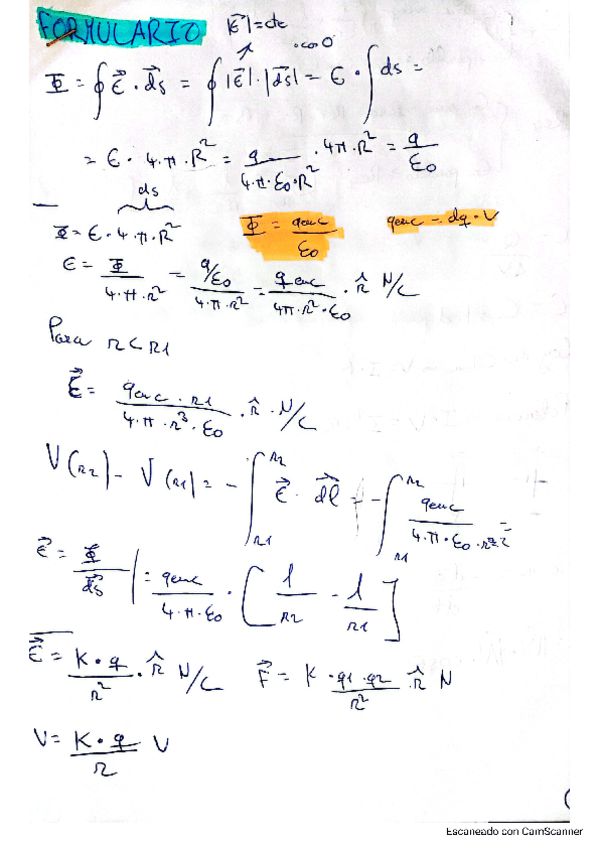 FORMULARIO |E⃗| = cte
Φ = ∮ E⃗ · ds⃗ = ∮ |E⃗| · |ds⃗| · cos 0 = E · ∫ ds =
= E · 4·π·R² = q / (4·π·ε₀·R²) · 4π·R² = q / ε₀
ds
Φ = E · 4·π·R² Φ = qenc / ε₀ qenc = dq · V
E = Φ / (4·π·r²) = (q/ε₀) / (4·π·r²) = qenc / (4π·r²·ε₀) · r̂ N/C
Para r < R1
E⃗ = (qenc · R1) / (4·π·r³·ε₀) · r̂ · N/C
V(R2) - V(R1) = - ∫_{R1}^{R2} E⃗ · dl⃗ = - ∫_{R1}^{R2} qenc / (4·π·ε₀·r²) =
E⃗ = Φ / ds⃗ | = qenc / (4·π·ε₀) · [ 1/R2 - 1/R1 ]
E⃗ = (K · q) / r² · r̂ N/C F⃗ = (K · q1 · q2) / r² r̂ N
V = (K · q) / r V
Escaneado con CamScanner